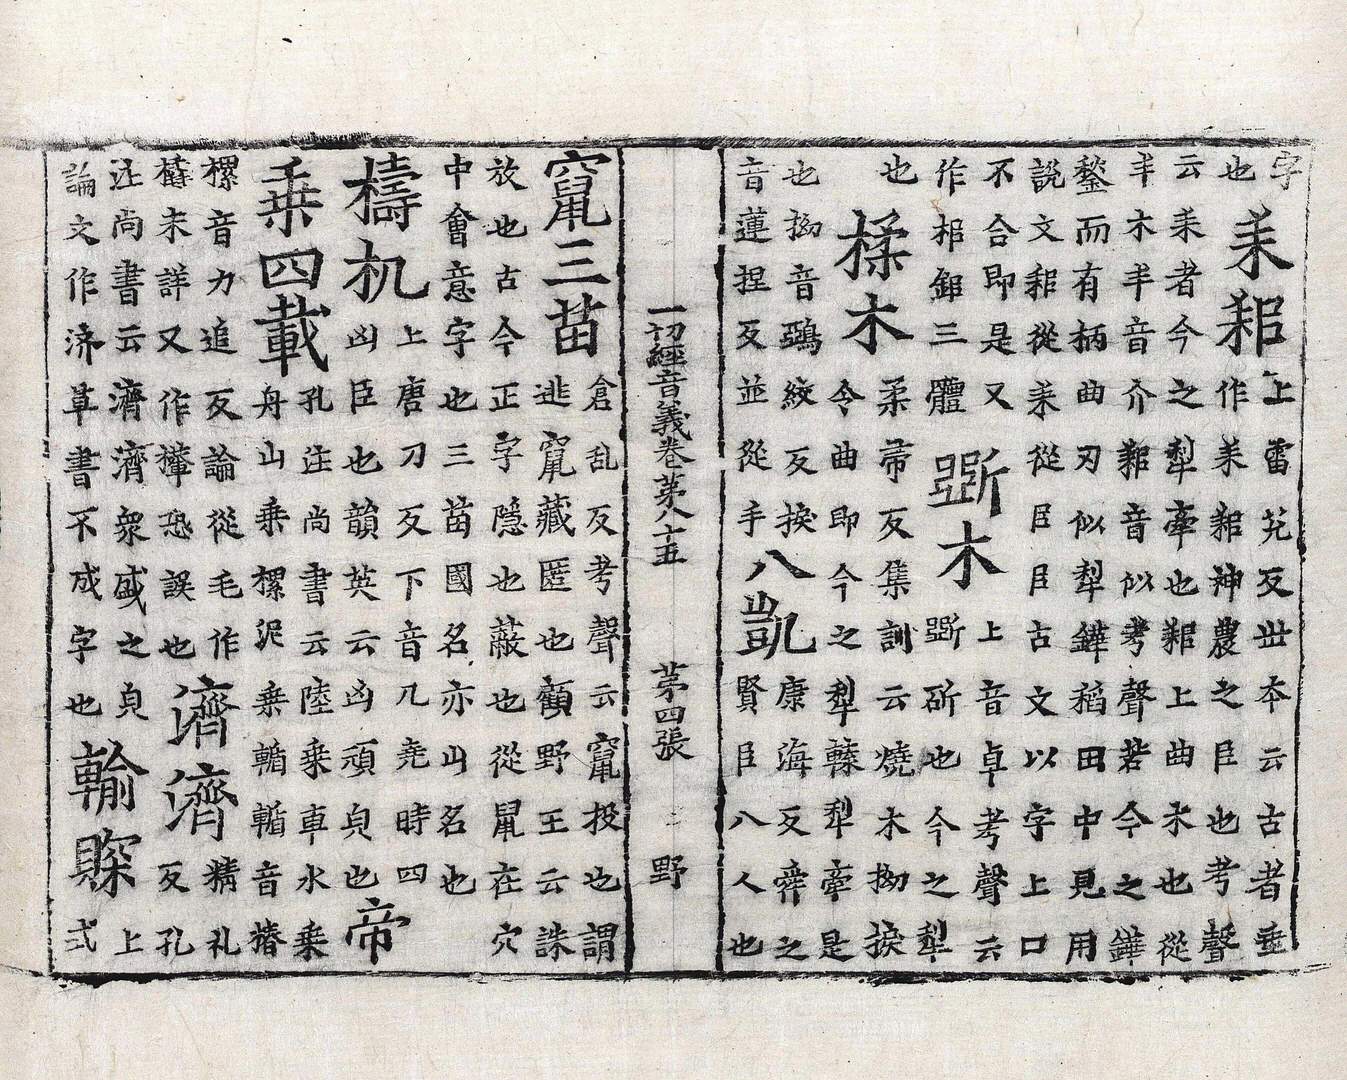 字
也
耒耜
上雷兖反世本云古者垂
作耒耜神農之臣也考聲
云耒者今之犁牽也耜上曲木也從
半木半音介耜音似考聲若今之鏵
鍫而有柄曲刃似犁鏵稻田中見用
說文耜從耒從㠯㠯古文以字上口
不合即是又
作梠鉬三體
斵木
上音卓考聲云
斵斫也今之犁
也
揉木
柔帚反集訓云燒木拗捩
令曲即今之犁轅犁牽是
也拗音鵶絞反捩
音蓮捏反並從手
八凱
康海反舜之
賢臣八人也
一切經音義卷苐八十五 苐四張 野
竄三苗
倉乱反考聲云竄投也謂
逃竄藏匿也顧野王云誅
放也古今正字隱也蔽也從鼠在穴
中會意字也三苗國名亦山名也
檮杌
上唐刀反下音兀堯時四
凶臣也韻英云凶頑皃也
帝
乗四載
孔注尚書云陸乗車水乗
舟山乗樏泥乗輴輴音椿
樏音力追反論從毛作
橇未詳又作檋恐誤也
濟濟
精礼
反孔
注尚書云濟濟衆盛之皃
論文作済草書不成字也
輸賝
上
式